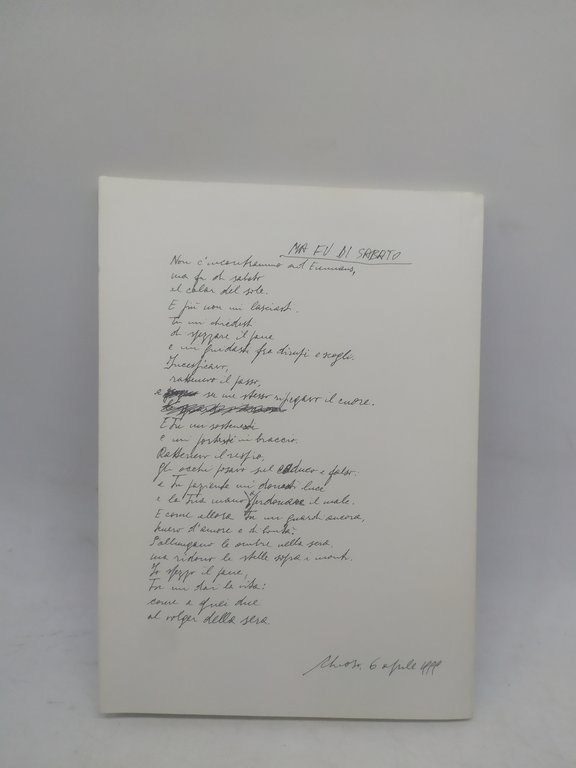 MA FU DI SABATO
Non c'incontrammo ad Emmaus,
ma fu di sabato
al calar del sole.
E più non mi lasciasti.
Tu mi chiedesti
di spezzare il pane
e mi guidasti fra dirupi e scogli.
Incespicavo,
rattenevo il passo,
e su me stesso ripiegavo il cuore.
E Tu mi sostenesti
e mi portasti in braccio.
Rattenevo il respiro,
gli occhi posavo sul caduco e falso:
e Tu paziente mi donasti luce
e la Tua mano perdonava il male.
E come allora Tu mi guardi ancora,
d'amore e di bontà.
S'allungano le ombre nella sera,
ma ridono le stelle sopra i monti.
Io spezzo il pane,
Tu mi dai la vita:
come a quei due
al volger della sera.
6 aprile 1999